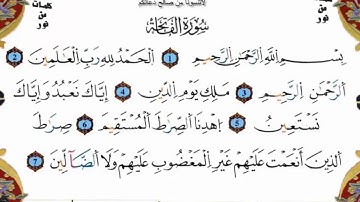 لاتنسونا من صالح دعائكم
كلمات من نور
سورة الفاتحة
بِسْمِ اللَّهِ الرَّحْمَٰنِ الرَّحِيمِ 1 الْحَمْدُ لِلَّهِ رَبِّ الْعَالَمِينَ 2
الرَّحْمَٰنِ الرَّحِيمِ 3 مَالِكِ يَوْمِ الدِّينِ 4 إِيَّاكَ نَعْبُدُ وَإِيَّاكَ
نَسْتَعِينُ 5 اهْدِنَا الصِّرَاطَ الْمُسْتَقِيمَ 6 صِرَاطَ
الَّذِينَ أَنْعَمْتَ عَلَيْهِمْ غَيْرِ الْمَغْضُوبِ عَلَيْهِمْ وَلَا الضَّالِّينَ 7